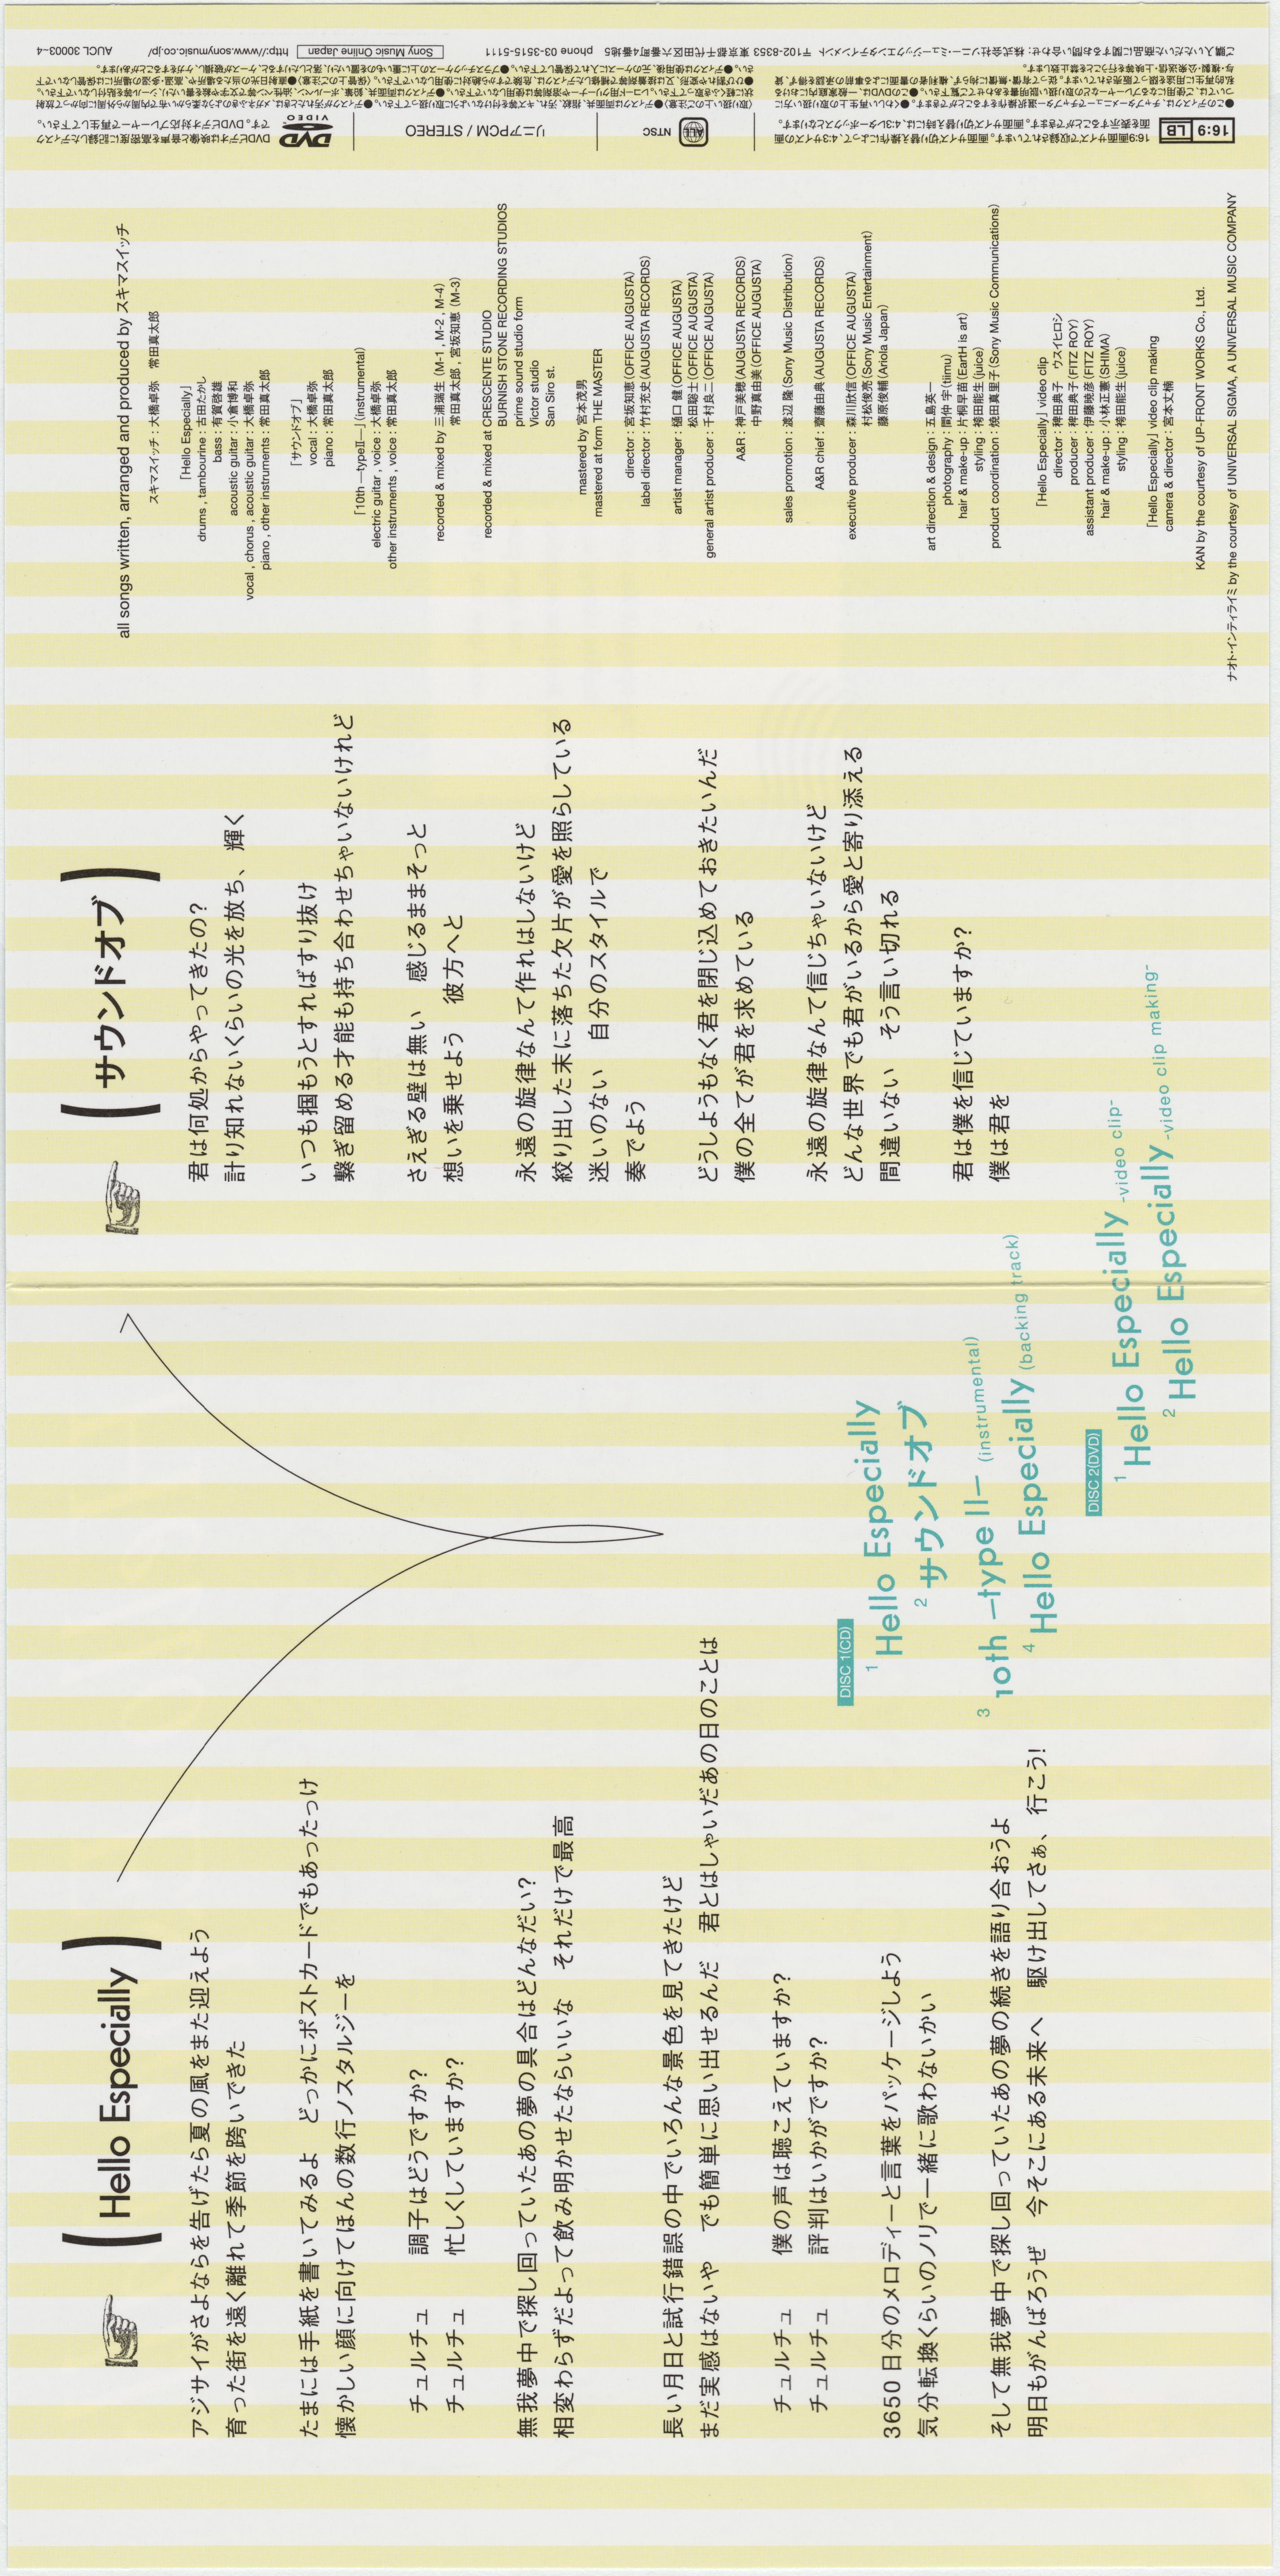 ( Hello Especially )
アジサイがさよならを告げたら夏の風をまた迎えよう
育った街を遠く離れて季節を跨いできた
たまには手紙を書いてみるよ　どっかにポストカードでもあったっけ
懐かしい顔に向けてほんの数行ノスタルジーを
チュルチュ　調子はどうですか?
チュルチュ　忙しくしていますか?
無我夢中で探し回っていたあの夢の具合はどんなだい?
相変わらずだよって飲み明かせたならいいな　それだけで最高
長い月日と試行錯誤の中でいろんな景色を見てきたけど
まだ実感はないや　でも簡単に思い出せるんだ　君とはしゃいだあの日のことは
チュルチュ　僕の声は聴こえていますか?
チュルチュ　評判はいかがですか?
3650日分のメロディーと言葉をパッケージしよう
気分転換くらいのノリで一緒に歌わないかい
そして無我夢中で探し回っていたあの夢の続きを語り合おうよ
明日もがんばろうぜ　今そこにある未来へ　駆け出してさぁ、行こう!
DISC 1(CD)
1 Hello Especially
2 サウンドオブ
3 10th ―type II― (instrumental)
4 Hello Especially (backing track)
DISC 2(DVD)
1 Hello Especially -video clip-
2 Hello Especially -video clip making-
( サウンドオブ )
君は何処からやってきたの?
計り知れないくらいの光を放ち、輝く
いつも掴もうとすればすり抜け
繋ぎ留める才能も持ち合わせちゃいないけれど
さえぎる壁は無い　感じるままそっと
想いを乗せよう　彼方へと
永遠の旋律なんて作れはしないけど
絞り出した末に落ちた欠片が愛を照らしている
迷いのない　自分のスタイルで
奏でよう
どうしようもなく君を閉じ込めておきたいんだ
僕の全てが君を求めている
永遠の旋律なんて信じちゃいないけど
どんな世界でも君がいるから愛と寄り添える
間違いない　そう言い切れる
君は僕を信じていますか?
僕は君を
all songs written, arranged and produced by スキマスイッチ
スキマスイッチ : 大橋卓弥　常田真太郎
「Hello Especially」
drums , tambourine : 古田たかし
bass : 有賀啓雄
acoustic guitar : 小倉博和
vocal , chorus , acoustic guitar : 大橋卓弥
piano , other instruments : 常田真太郎
「サウンドオブ」
vocal : 大橋卓弥
piano : 常田真太郎
「10th ―typeII―」(instrumental)
electric guitar , voice : 大橋卓弥
other instruments , voice : 常田真太郎
recorded & mixed by 三浦瑞生 (M-1 , M-2 , M-4)
常田真太郎 , 宮坂知恵 (M-3)
recorded & mixed at CRESCENTE STUDIO
BURNISH STONE RECORDING STUDIOS
prime sound studio form
Victor studio
San Siro st.
mastered by 宮本茂男
mastered at form THE MASTER
director : 宮坂知恵(OFFICE AUGUSTA)
label director : 竹村充史(AUGUSTA RECORDS)
artist manager : 樋口 健(OFFICE AUGUSTA)
松田聡士(OFFICE AUGUSTA)
general artist producer : 千村良二(OFFICE AUGUSTA)
A&R : 神戸美穂(AUGUSTA RECORDS)
中野真由美(OFFICE AUGUSTA)
sales promotion : 渡辺 隆(Sony Music Distribution)
A&R chief : 齋藤由典(AUGUSTA RECORDS)
executive producer : 森川欣信(OFFICE AUGUSTA)
村松俊亮(Sony Music Entertainment)
藤原俊輔(Ariola Japan)
art direction & design : 五島英一
photography : 間仲 宇(tiimu)
hair & make-up : 片桐早苗(EartH is art)
styling : 袴田能生(juice)
product coordination : 焼田真里子(Sony Music Communications)
「Hello Especially」video clip
director : 稗田典子　ウスイヒロシ
producer : 稗田典子(FITZ ROY)
assistant producer : 伊藤暁彦(FITZ ROY)
hair & make-up : 小林正憲(SHIMA)
styling : 袴田能生(juice)
「Hello Especially」video clip making
camera & director : 宮本丈楠
KAN by the courtesy of UP-FRONT WORKS Co., Ltd.
ナオト・インティライミ by the courtesy of UNIVERSAL SIGMA, A UNIVERSAL MUSIC COMPANY
16:9 LB
16:9画面サイズで収録されています。画面サイズ切り替え操作によって、4:3サイズの画
面を表示することができます。画面サイズ切り替え時には、4:3レターボックスとなります。
ALL
NTSC
リニアPCM / STEREO
DVD VIDEO
DVDビデオは映像と音声を高密度に記録したディスク
です。DVDビデオ対応プレーヤーで再生して下さい。
ご購入いただいた商品に関するお問い合わせ: 株式会社ソニー・ミュージックエンタテインメント　〒102-8353 東京都千代田区六番町4番地5　phone 03-3515-5111
Sony Music Online Japan
http://www.sonymusic.co.jp/
AUCL 30003~4